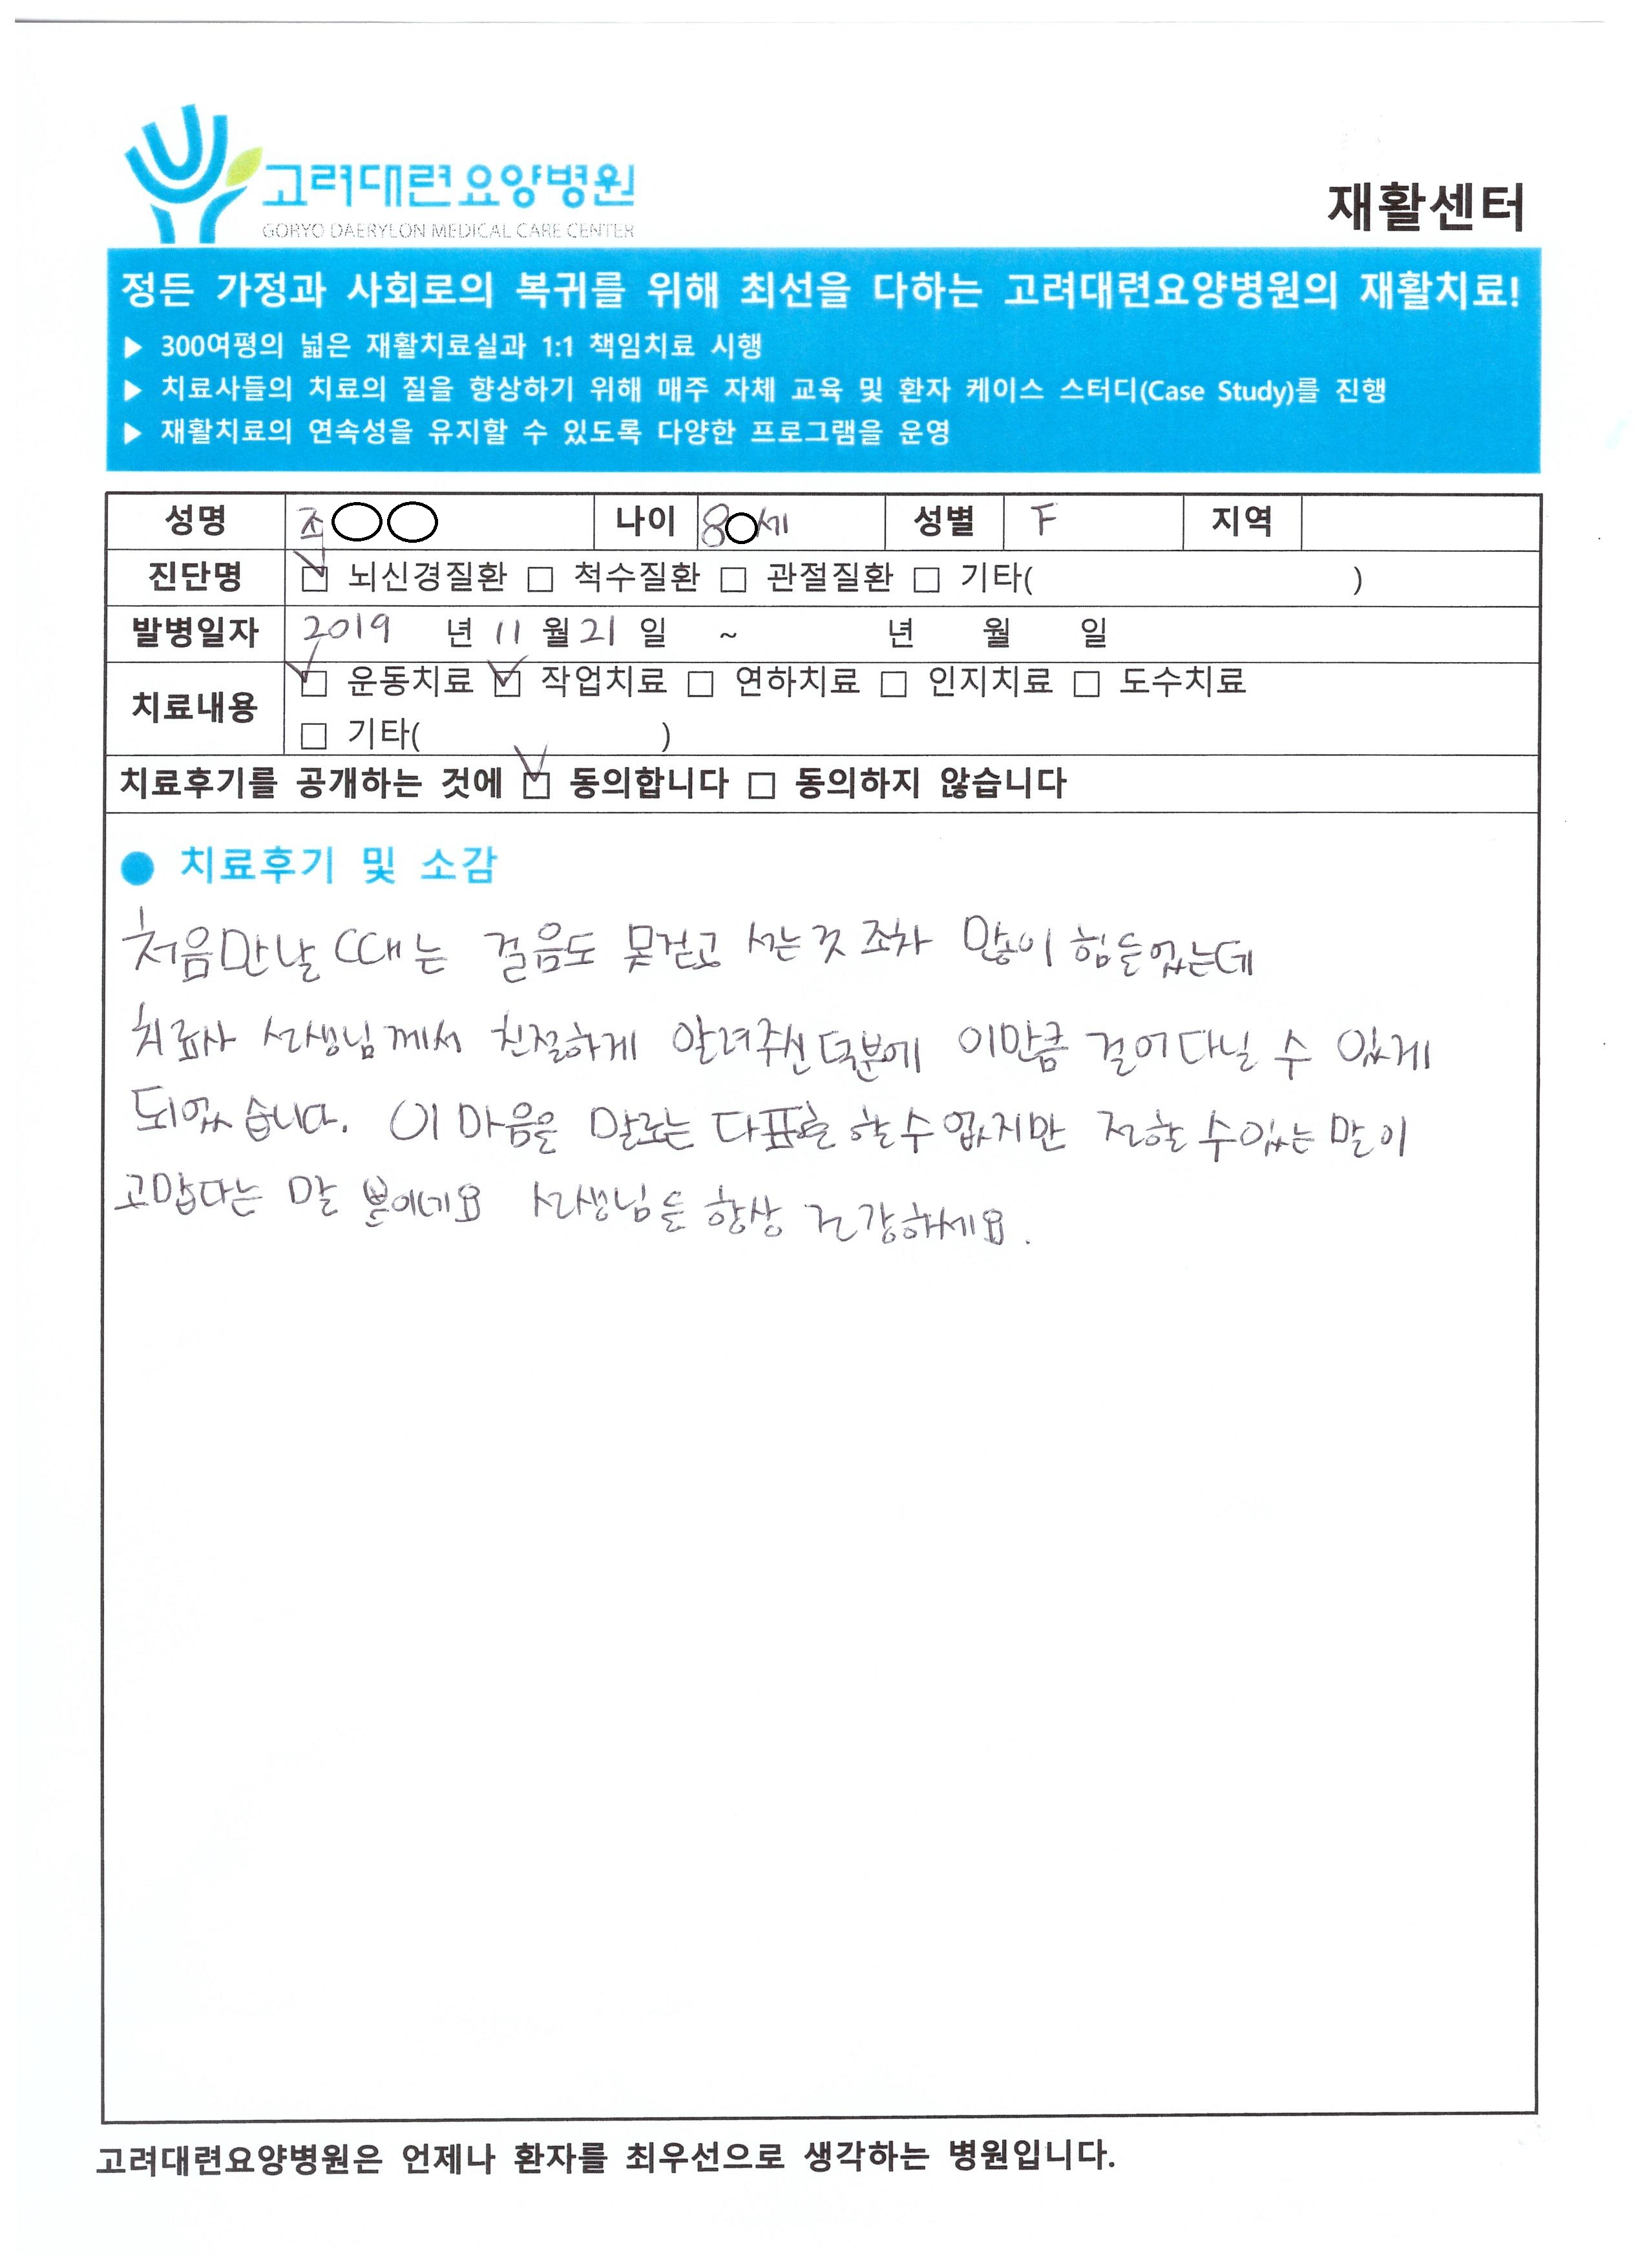 고려대련요양병원
GORYO DAERYLON MEDICAL CARE CENTER
재활센터
정든 가정과 사회로의 복귀를 위해 최선을 다하는 고려대련요양병원의 재활치료!
▶ 300여평의 넓은 재활치료실과 1:1 책임치료 시행
▶ 치료사들의 치료의 질을 향상하기 위해 매주 자체 교육 및 환자 케이스 스터디(Case Study)를 진행
▶ 재활치료의 연속성을 유지할 수 있도록 다양한 프로그램을 운영
성명 조○○ 나이 8○세 성별 F 지역
진단명 ☑ 뇌신경질환 □ 척수질환 □ 관절질환 □ 기타( )
발병일자 2019 년 11 월 21 일 ~ 년 월 일
치료내용 ☑ 운동치료 ☑ 작업치료 □ 연하치료 □ 인지치료 □ 도수치료
□ 기타( )
치료후기를 공개하는 것에 ☑ 동의합니다 □ 동의하지 않습니다
● 치료후기 및 소감
처음만날 때는 걸음도 못걷고 서는것 조차 많이 힘들었는데
치료사 선생님께서 친절하게 알려주신 덕분에 이만큼 걸어다닐 수 있게
되었습니다. 이 마음을 말로는 다표현 할수 없지만 전할 수있는 말이
고맙다는 말 뿐이네요 선생님들 항상 건강하세요.
고려대련요양병원은 언제나 환자를 최우선으로 생각하는 병원입니다.